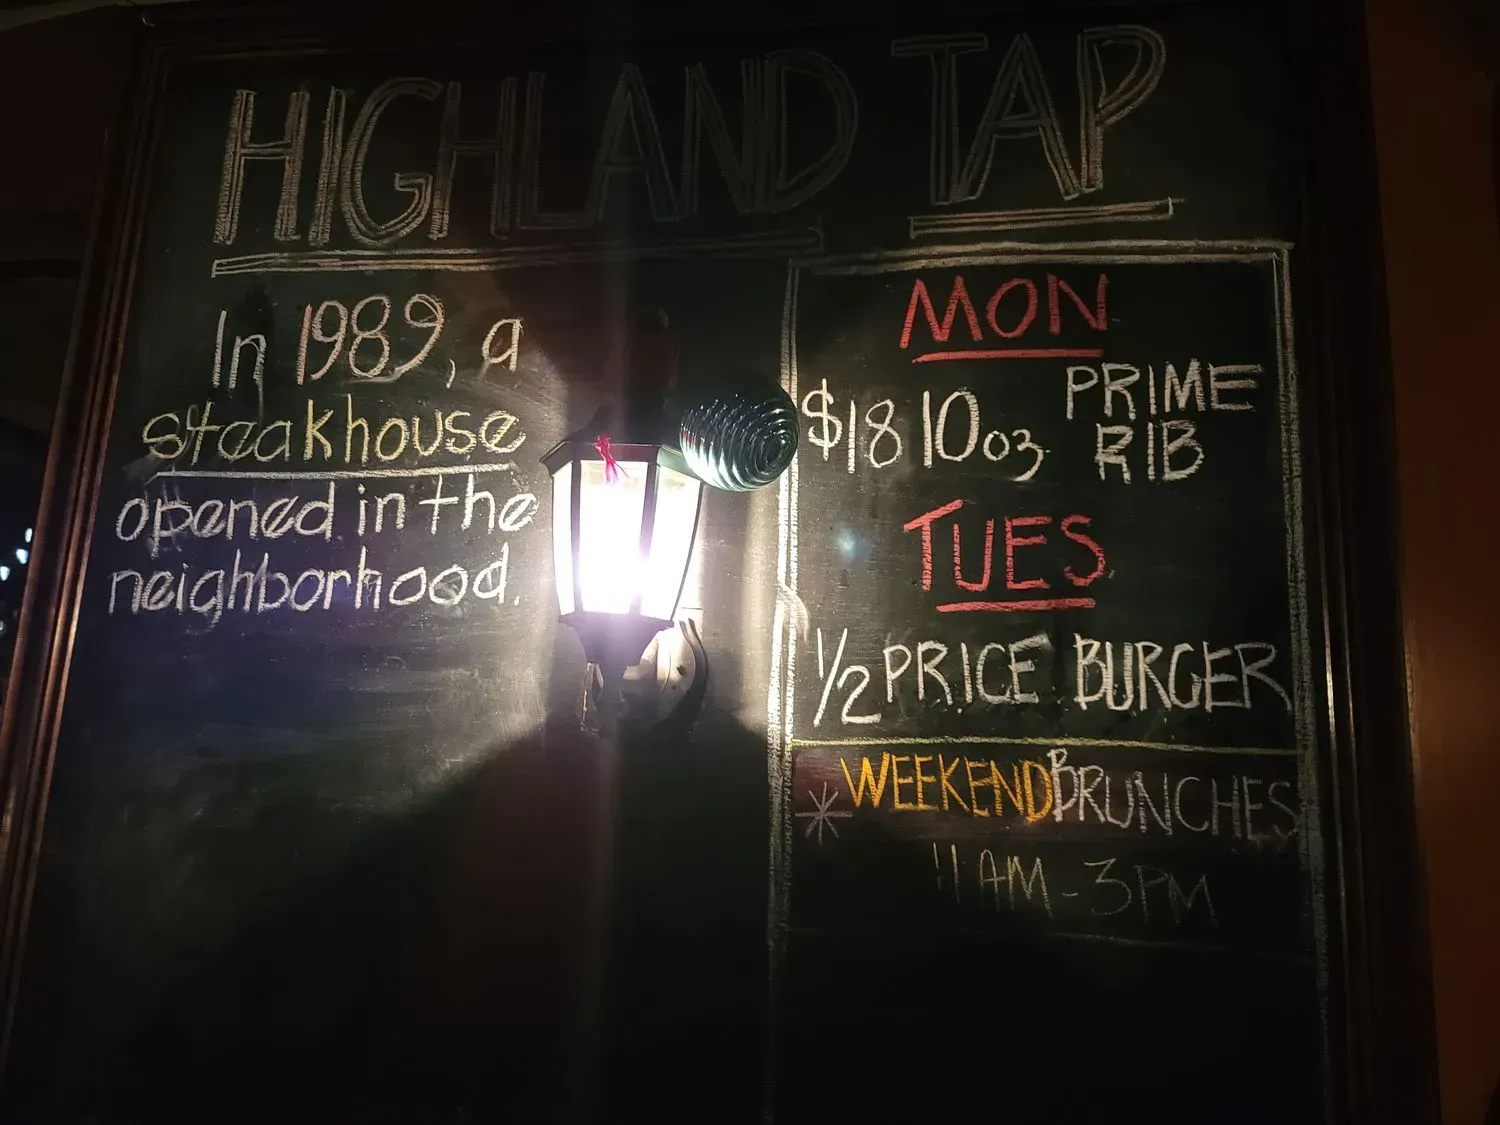 HIGHLAND TAP
In 1989, a
steakhouse
opened in the
neighborhood.
MON
$18 10oz PRIME
RIB
TUES
1/2 PRICE BURGER
*WEEKEND BRUNCHES
11AM-3PM